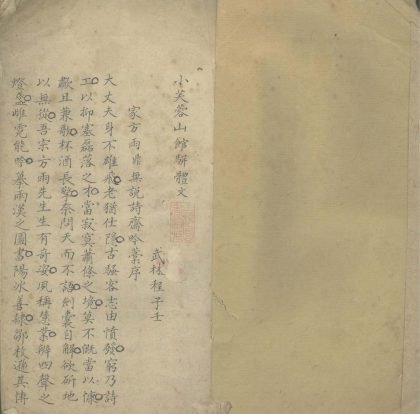 小芙蓉山館駢體文
武林程子壬
家方雨非無說詩齋吟藁序
大丈夫身不雄飛老猶仕隱古騷客志由憤發窮乃詩
工以抑塞磊落之才當寂寞蕭條之境莫不慨當以慷
歡且兼歌杯酒長擎奈問天而不語劍囊自解欲斫地
以無從吾宗方雨先生生有奇姿夙稱隽業辨四聲之
燈盛唯究能吟摹兩漢之圖書陽冰善隸鄒枚遜其傳